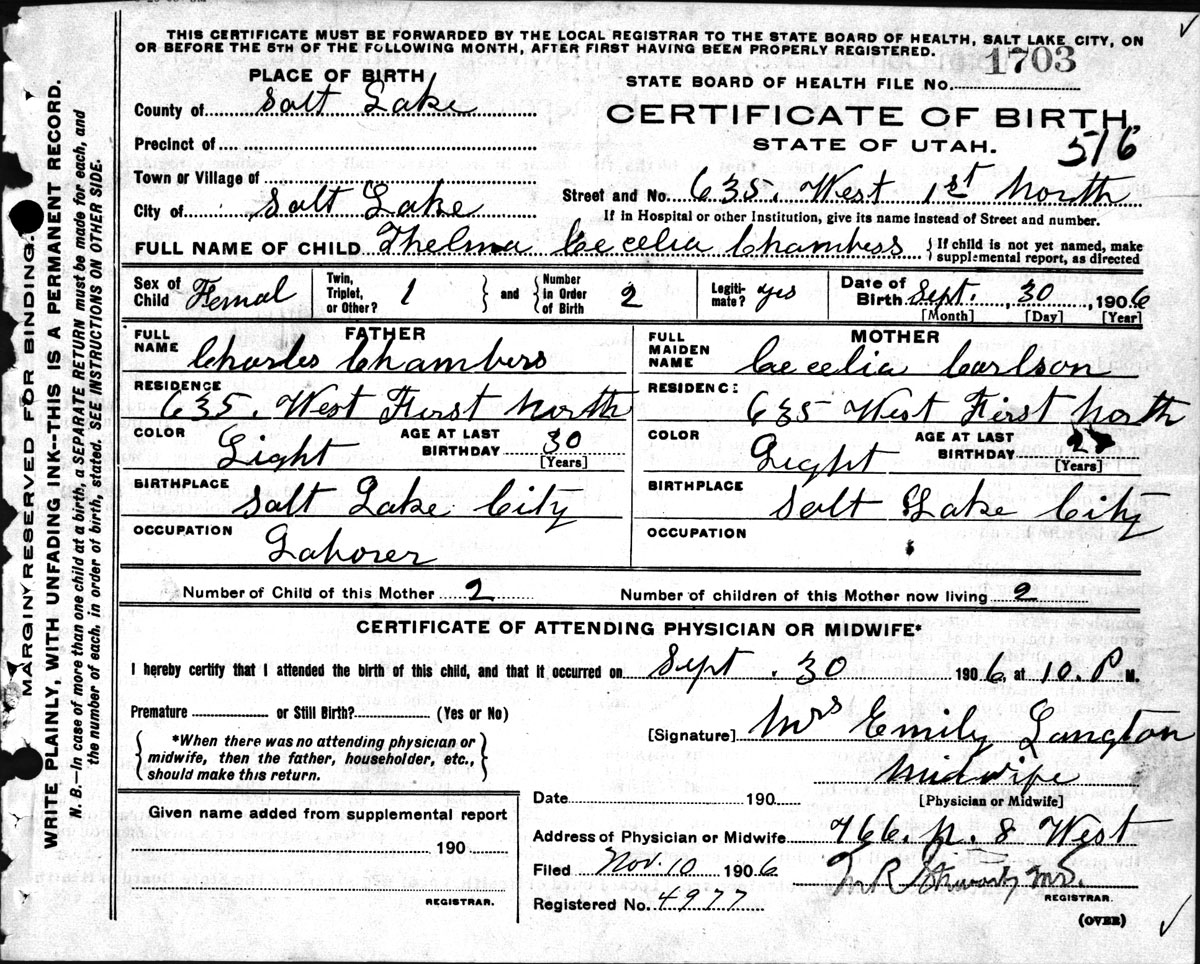 THIS CERTIFICATE MUST BE FORWARDED BY THE LOCAL REGISTRAR TO THE STATE BOARD OF HEALTH, SALT LAKE CITY, ON
OR BEFORE THE 5TH OF THE FOLLOWING MONTH, AFTER FIRST HAVING BEEN PROPERLY REGISTERED.
1703
STATE BOARD OF HEALTH FILE No.
PLACE OF BIRTH
County of Salt Lake
CERTIFICATE OF BIRTH
STATE OF UTAH.
516
Precinct of
Town or Village of
Street and No. 635. West 1st North
City of Salt Lake
If in Hospital or other Institution, give its name instead of Street and number.
FULL NAME OF CHILD Thelma Cecelia Chambess
{ If child is not yet named, make
supplemental report, as directed
Sex of Child Femal
Twin, Triplet, or Other? 1 } and { Number in Order of Birth 2
Legiti-mate? yes
Date of Birth Sept. 30, 1906
[Month] [Day] [Year]
FATHER
FULL NAME Charles Chambers
RESIDENCE
635. West First North
COLOR Light
AGE AT LAST BIRTHDAY 30
[Years]
BIRTHPLACE
Salt Lake City
OCCUPATION
Laborer
MOTHER
FULL MAIDEN NAME Cecelia Carlson
RESIDENCE
635 West First North
COLOR Light
AGE AT LAST BIRTHDAY
[Years]
BIRTHPLACE
Salt Lake City
OCCUPATION
Number of Child of this Mother 2
Number of children of this Mother now living 2
CERTIFICATE OF ATTENDING PHYSICIAN OR MIDWIFE*
I hereby certify that I attended the birth of this child, and that it occurred on Sept. 30 1906, at 10. P M.
Premature or Still Birth? (Yes or No)
{ *When there was no attending physician or
midwife, then the father, householder, etc.,
should make this return. }
[Signature] Mrs Emily Langton
Midwife
[Physician or Midwife]
Given name added from supplemental report
190
REGISTRAR.
Date 190
Address of Physician or Midwife 766. N. 8 West
Filed Nov. 10 1906
REGISTRAR.
Registered No. 4977
(OVER)
MARGIN RESERVED FOR BINDING.
WRITE PLAINLY, WITH UNFADING INK--THIS IS A PERMANENT RECORD.
N. B.—In case of more than one child at a birth, a SEPARATE RETURN must be made for each, and
the number of each, in order of birth, stated. SEE INSTRUCTIONS ON OTHER SIDE.